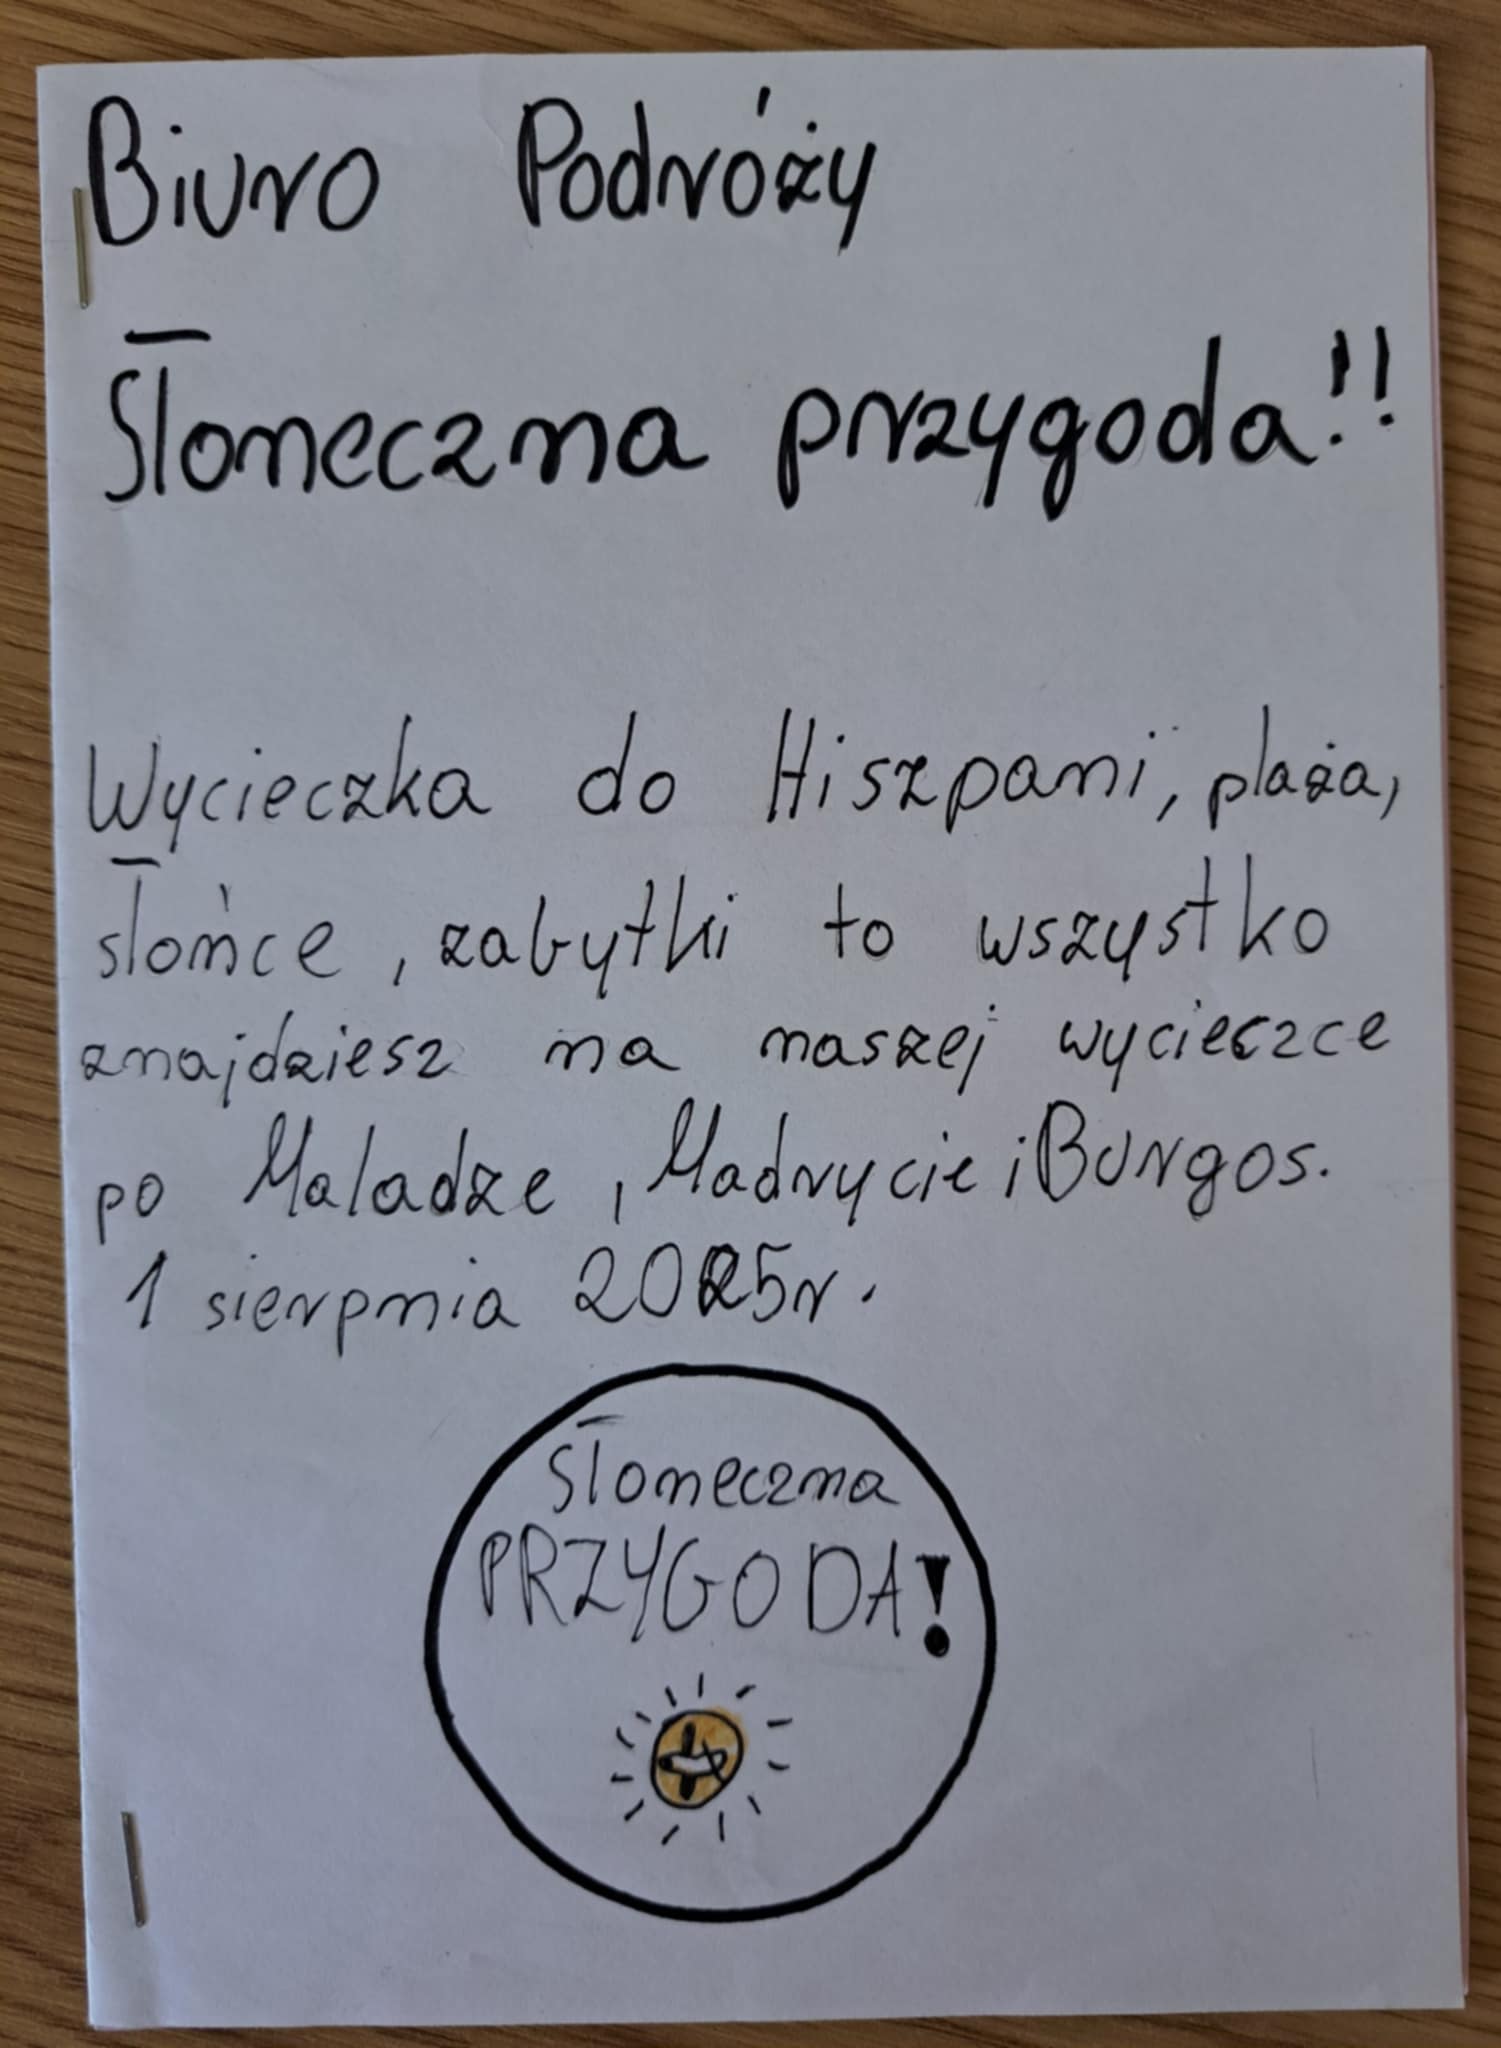 Biuro Podróży
Słoneczna przygoda!!
Wycieczka do Hiszpani, plaża,
słońce, zabytki to wszystko
znajdziesz na naszej wycieczce
po Maladze, Madrycie i Burgos.
1 sierpnia 2025r.
Słoneczna
PRZYGODA!